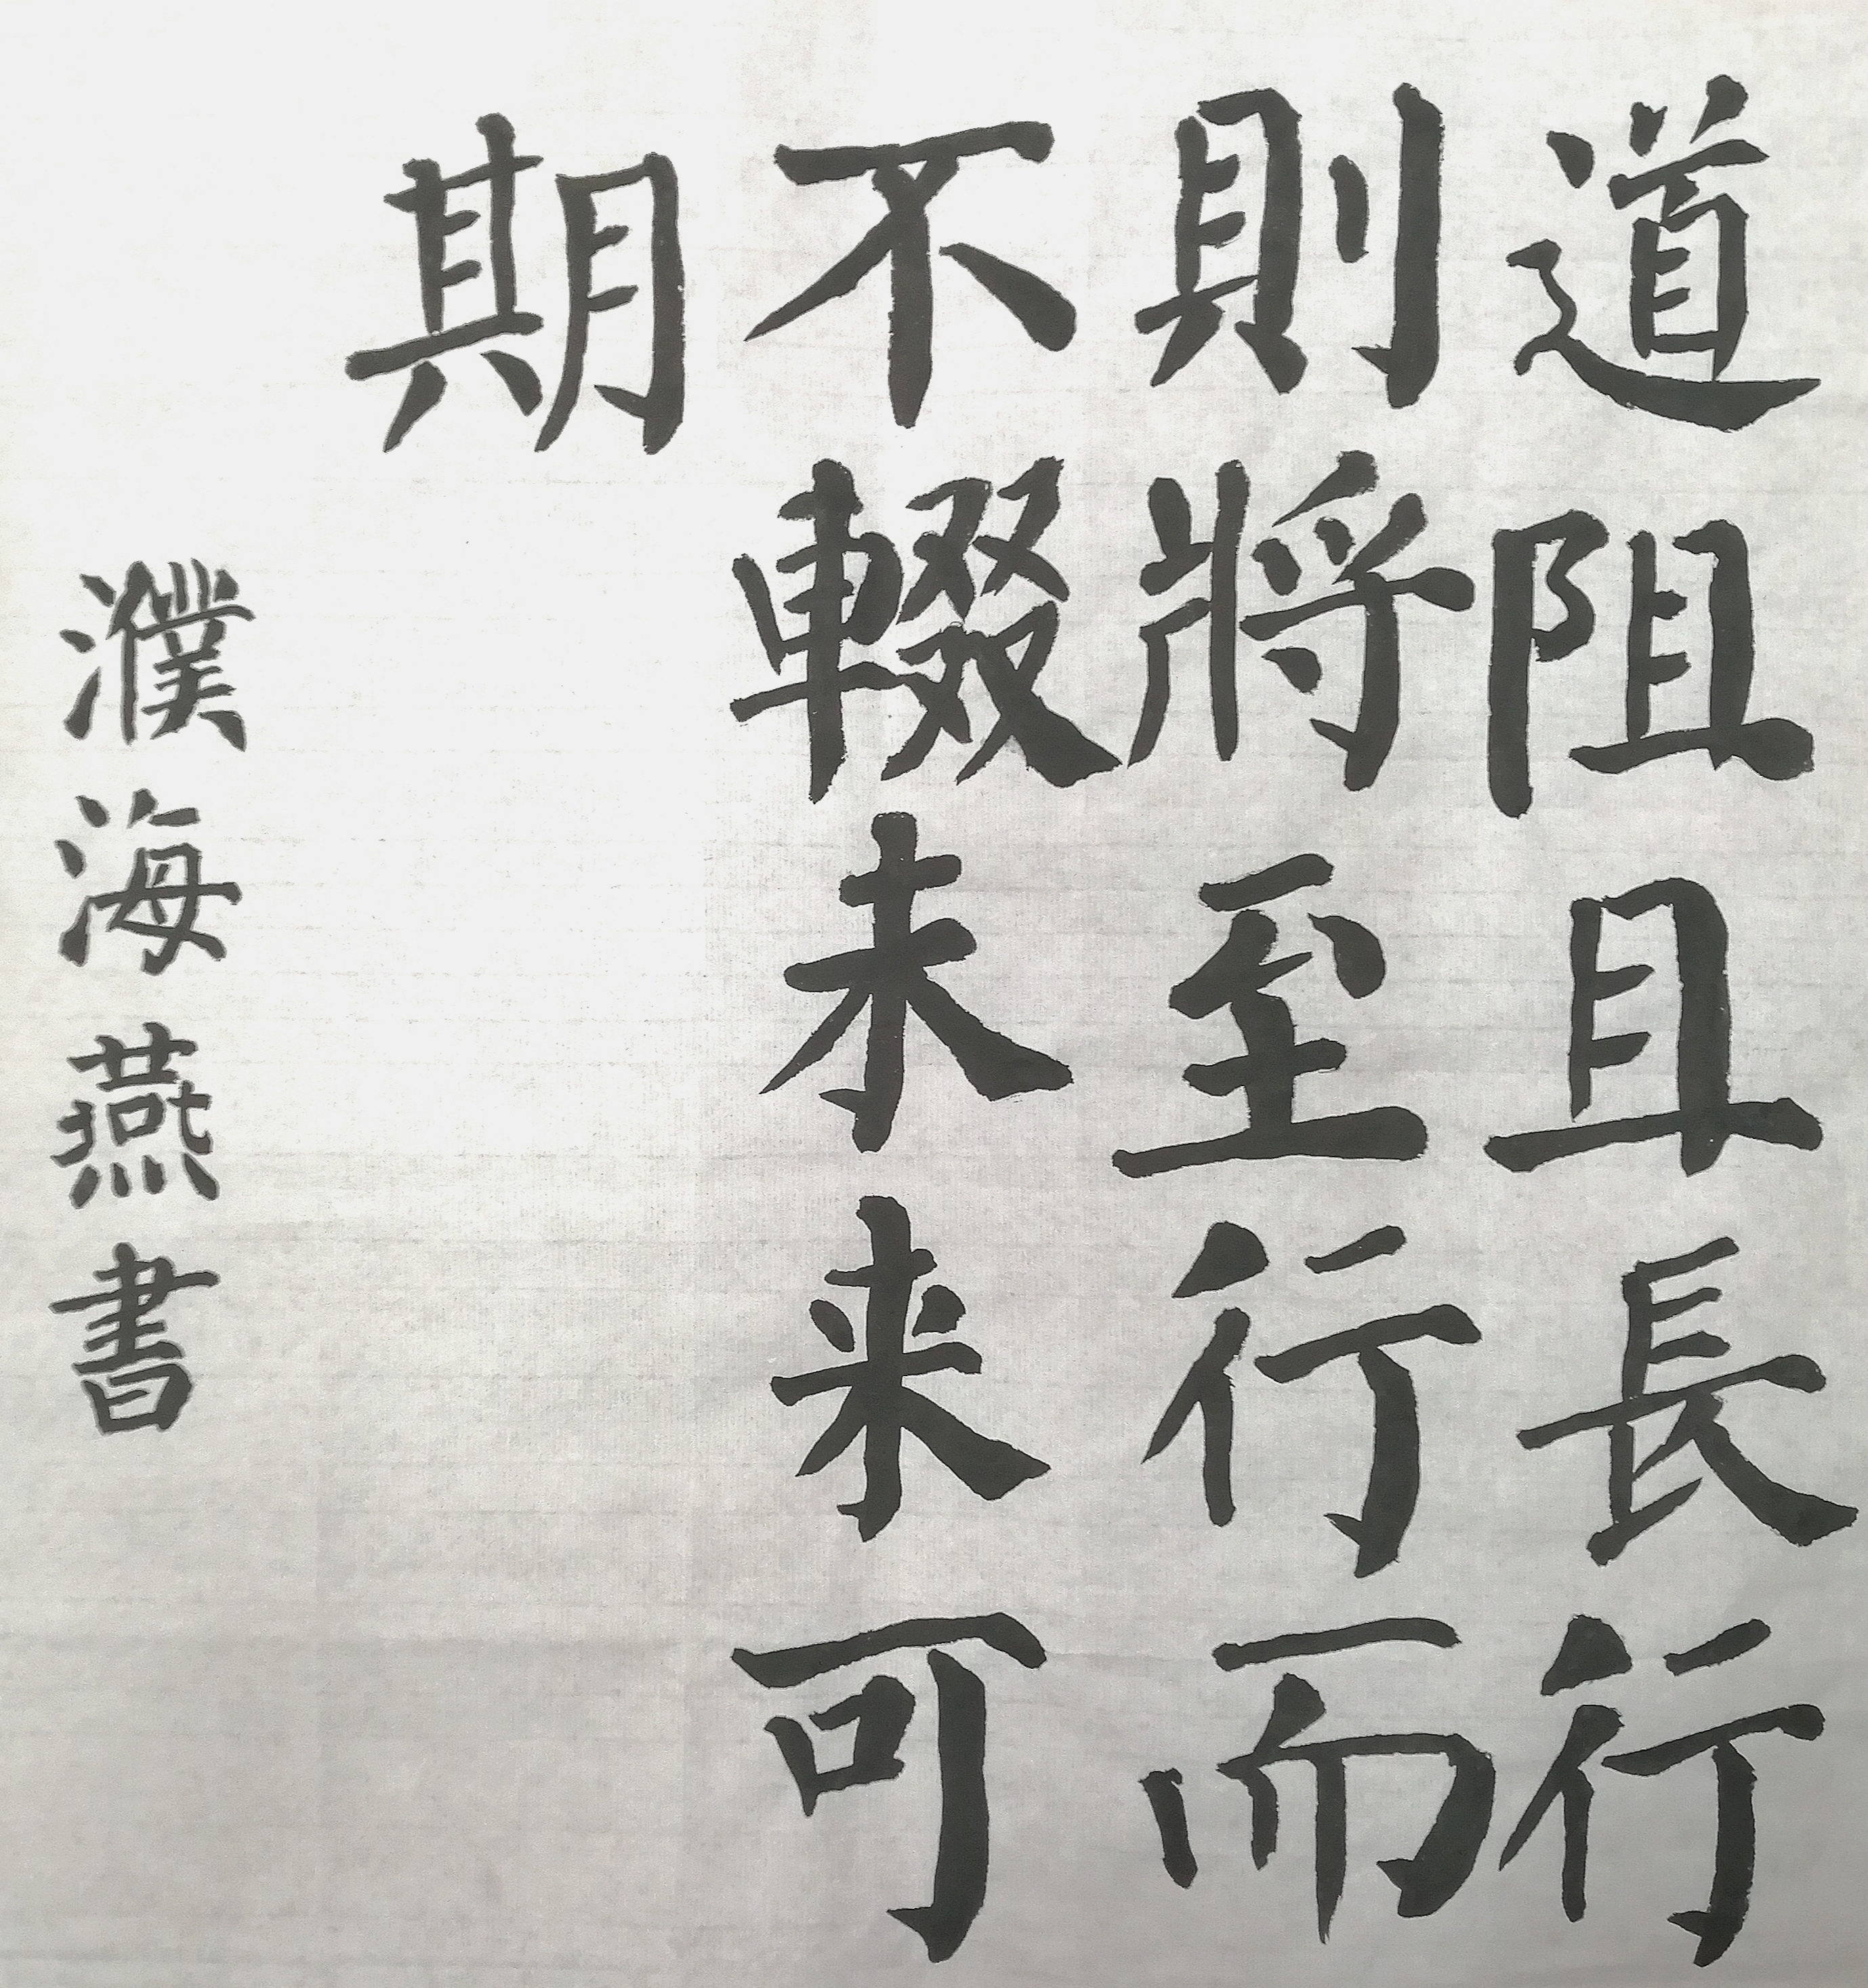 道阻且長行
則將至行而
不辍未来可
期
濮海燕書